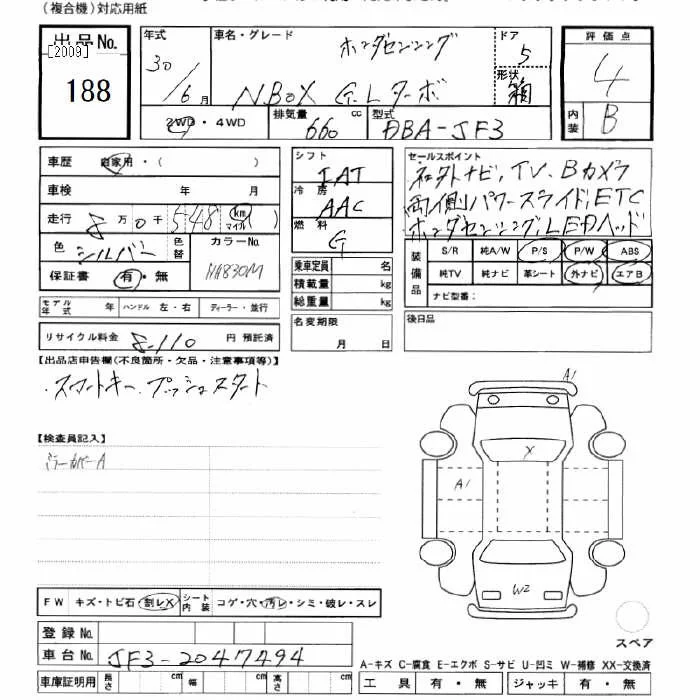 (複合機)対応用紙
出品No. [2009] 188
年式 30/6月
車名・グレード ホンダセンシング NBOX G.L ターボ
ドア 5
形状 箱
評価点 4
内装 B
2WD・4WD
排気量 660 cc
型式 DBA-JF3
車歴 自家用・( )
車検 年 月
走行 8万0千548 km マイル
色 シルバー 色替
カラーNo. NH830M
保証書 有・無
モデル年式 年 ハンドル 左・右 ディーラー・並行
リサイクル料金 8.110 円 預託済
シフト IAT
冷房 AAC
燃料 G
乗車定員 名
積載量 kg
総重量 kg
名変期限 月 日
セールスポイント
社外ナビ,TV,Bカメラ
両側パワースライド,ETC
ホンダセンシング,LEDヘッド
装備品
S/R 純A/W P/S P/W ABS
純TV 純ナビ 革シート 外ナビ エアB
ナビ型番:
後日品
【出品店申告欄(不良箇所・欠品・注意事項等)】
・スマートキー プッシュスタート
【検査員記入】
ミラーカバーA
A1
X
A1
W2
スペア
FW キズ・トビ石 割レX
シート内装 コゲ・穴・汚レ・シミ・破レ・スレ
登録No.
車台No. JF3-2047494
車庫証明用 長さ cm 幅 cm 高さ cm
A-キズ C-腐食 E-エクボ S-サビ U-凹ミ W-補修 XX-交換済
工具 有・無 ジャッキ 有・無